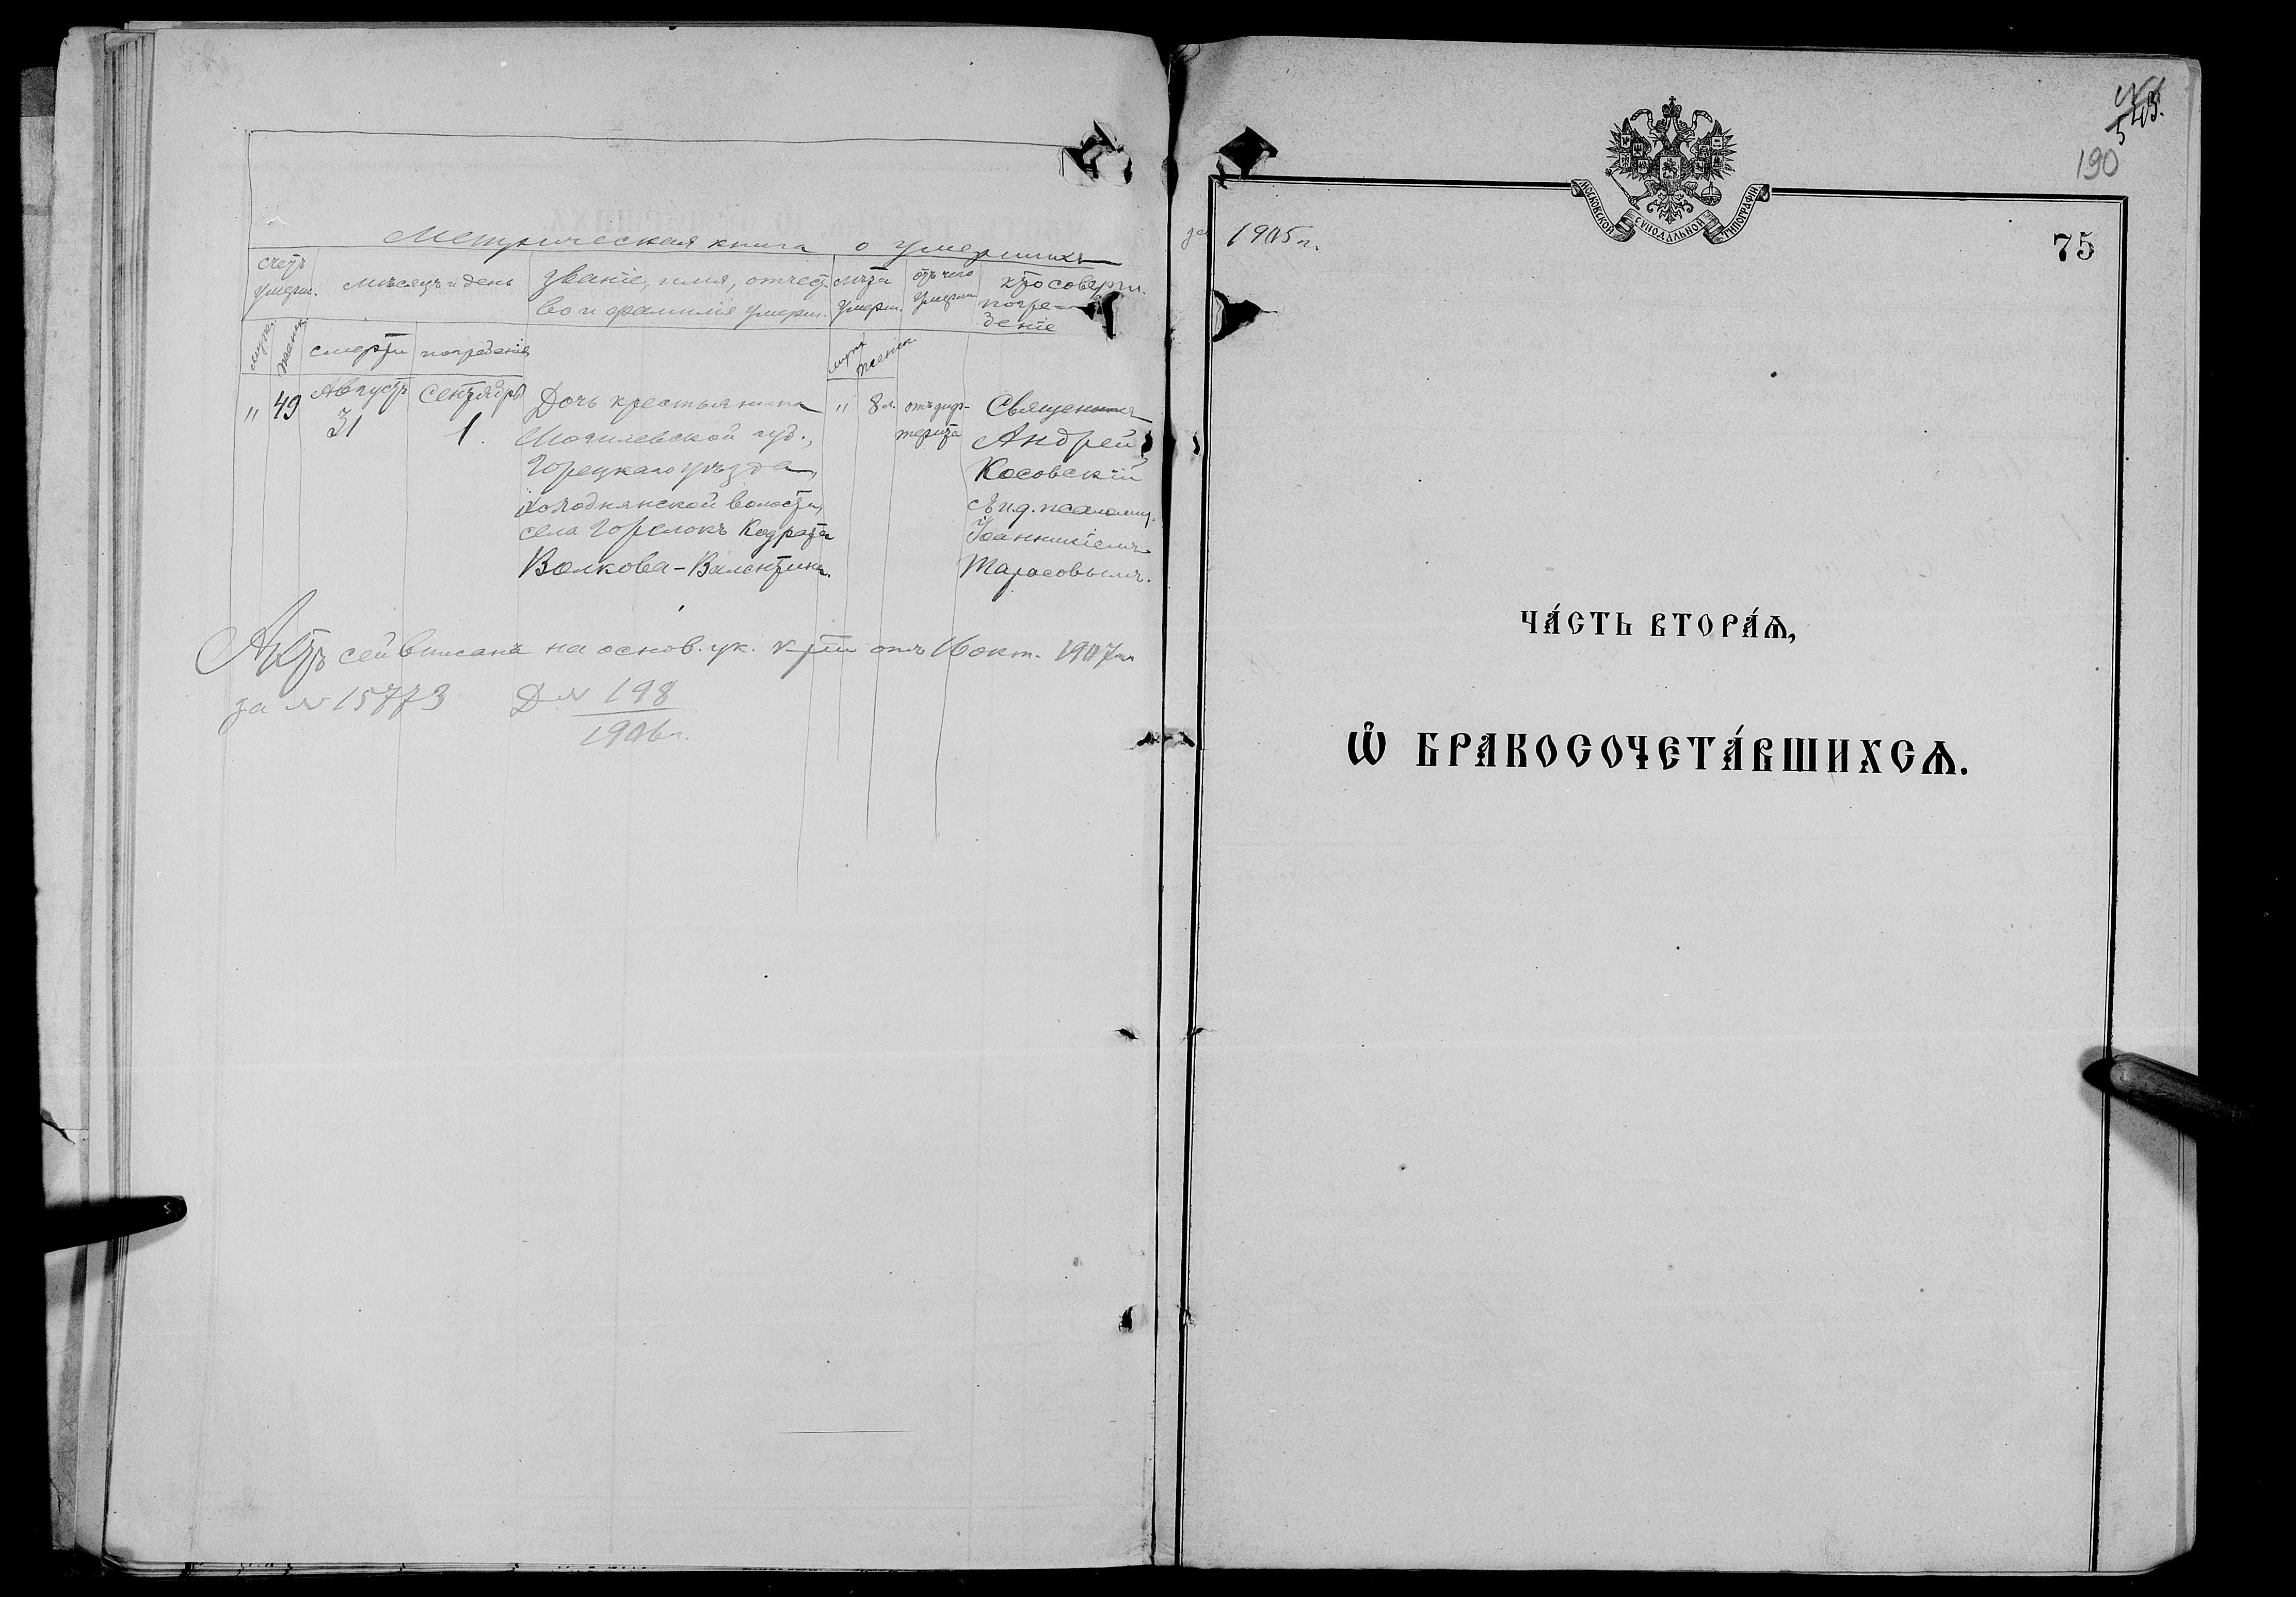 Метрическая книга о умершихъ
за 1905 г.
счетъ умерш.
мѣсяцъ и день
званіе, имя, отчест-
во и фамилія умерш.
лѣта умерш.
отъ чего умерла
кто соверш.
погре-
беніе
муж. женск.
смерти погребенія
муж. женск.
" 49
Августъ 31
Сентябрь 1.
Дочь крестьянина
Могилевской губ.,
Горецкаго уѣзда,
волости,
села Горелокъ Кодрата
Волкова - Валентина.
" 8 л.
отъ диф-
терита
Священникъ
Андрей
Косовскій
съ и. д. псаломщ.
Іоанникіемъ
Тарасовымъ.
Актъ сей вписанъ на основ. ук. к-ріи отъ 16 окт. 1907 г.
за № 15773 Д № 198
1906 г.
190
75
МОСКОВСКОЙ СѴНОДАЛЬНОЙ ТИПОГРАФІИ
ЧА́СТЬ ВТОРА́Ѧ,
Ѽ БРАКОСОЧЕТА́ВШИХСѦ.